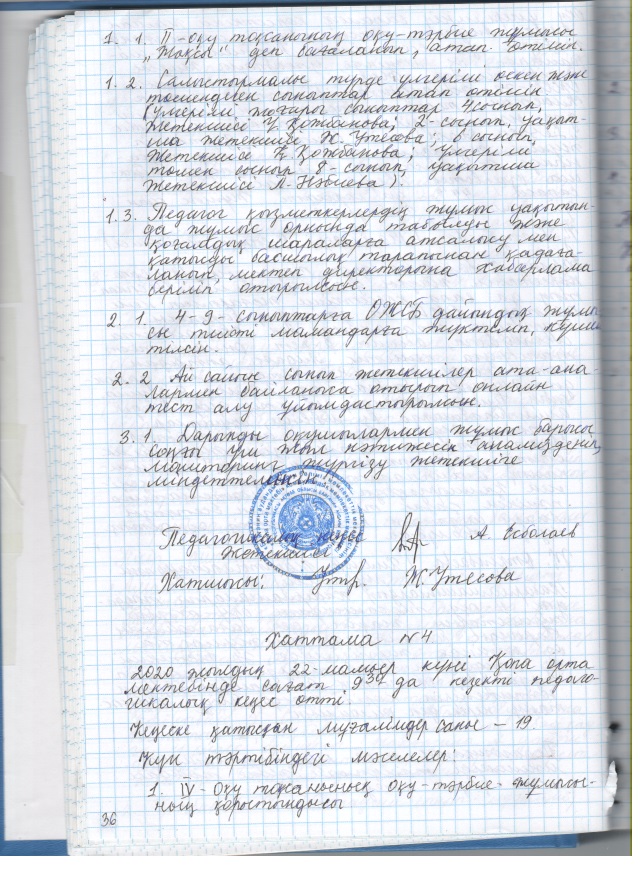 1. 1. II-оқу тоқсанының оқу-тәрбие жұмысы
„Жақсы" деп бағаланып, атап өтілсін.
1. 2. Салыстырмалы түрде үлгерімі өскен және
төмендеген сыныптар атап өтілсін
(үлгерімі жоғары сыныптар 4 сынып,
жетекшісі Ү Қожбанова; 2-сынып, уақыт-
ша жетекшісі Ж Утесова; 6 сынып,
жетекшісі Ү Қожбанова; үлгерімі
төмен сынып 8-сынып, уақытша
жетекшісі Л. Нәбиева).
1.3. Педагог қызметкерлердің жұмыс уақытын-
да жұмыс орнында табылуы және
қоғамдық шараларға атсалысу мен
қатысуы басшылық тарапынан қадаға-
ланып, мектеп директорына хабарлама
беріліп отырылсын.
2. 1. 4-9-сыныптарға ОЖСБ дайындық жұмы
сы тиісті мамандарға жүктеліп, күше
тілсін.
2. 2 Ай сайын сынып жетекшілер ата-ана-
лармен байланыса отырып онлайн
тест алу ұйымдастырылсын.
3. 1. Дарынды оқушылармен жұмыс барысы
соңғы үш жыл нәтижесін анализденіп,
мониторинг жүргізу жетекшіге
міндеттелсін.
Педагогикалық кеңес
жетекшісі А. Есболаев
Хатшысы: Ж. Утесова
Хаттама №4
2020 жылдың 22-мамыр күні Қоға орта
мектебінде сағат 9³⁰ да кезекті педаго-
гикалық кеңес өтті.
Кеңеске қатысқан мұғалімдер саны – 19.
Күн тәртібіндегі мәселелер:
1. IV-Оқу тоқсанының оқу-тәрбие-жұмысы-
ның қорытындысы
36